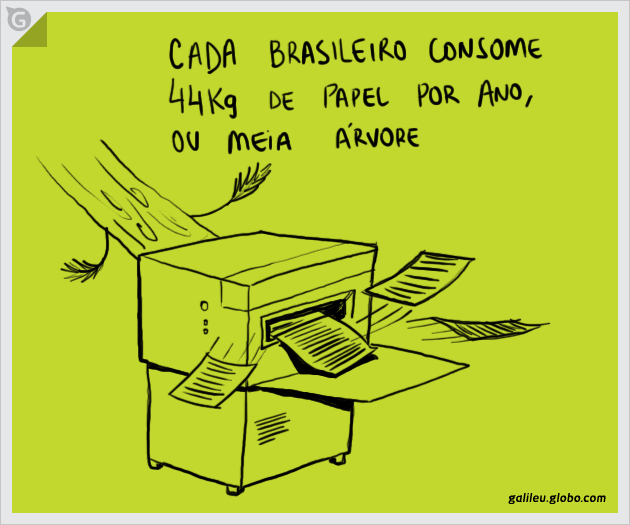 CADA BRASILEIRO CONSOME
44Kg DE PAPEL POR ANO,
OU MEIA ÁRVORE
galileu.globo.com